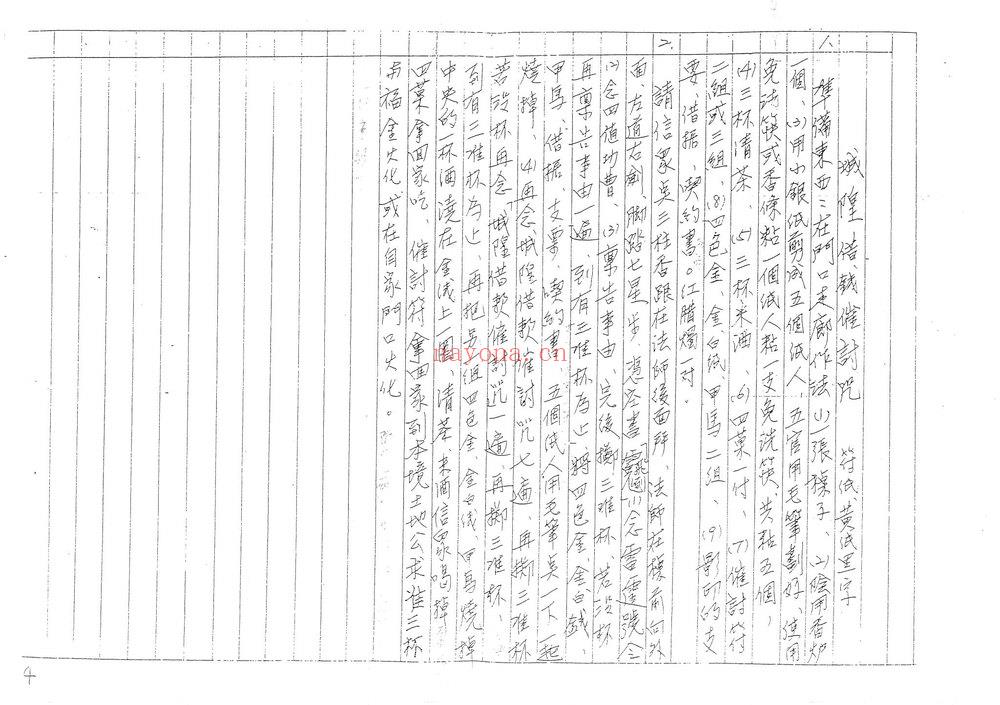 城隍借錢催討咒　符纸、黄纸黑字
1、準備東西：在門口走廊作法(1)一張檯子、(2)隂用香炉
一個、(3)用小銀纸剪成五個纸人、五官用毛筆劃好、使用
免洗筷或香條粘一個纸人粘一支免洗筷、共粘五個，
(4)三杯清茶、(5)三杯米酒、(6)四菓一付、(7)催討符
二組或三組、(8)四色金、金、白纸甲馬二組、(9)影印的支
要、借据、契约書。江腊燭一対。
2、請信眾点三柱香跟在法師後面所、法師在檯前向外
面、左道右劍、脚踏七星步、憑空書 (1)念雷霆號令
(2)念四值功曹、(3)稟告事由、完後擲三准杯、若没杯
再稟告事由一遍、到有三准杯為止、將四色金、金、白錢、
甲馬、借据、支票、契约書、五個纸人用毛筆点一下一起
燒掉、(4)再念城隍借款催討咒七遍、再擲三准杯
若没杯再念城隍借款催討咒一遍、再擲三准杯、
到有三准杯為止、再把另組四色金、金白钱、甲馬燒掉
中央的一杯酒澆在金钱上一圈、清茶、米酒信眾喝掉
四菓拿回家吃、催討符拿回家到本境土地公求准三杯
用福金火化或在自家門口火化。
nayopa.cn
4